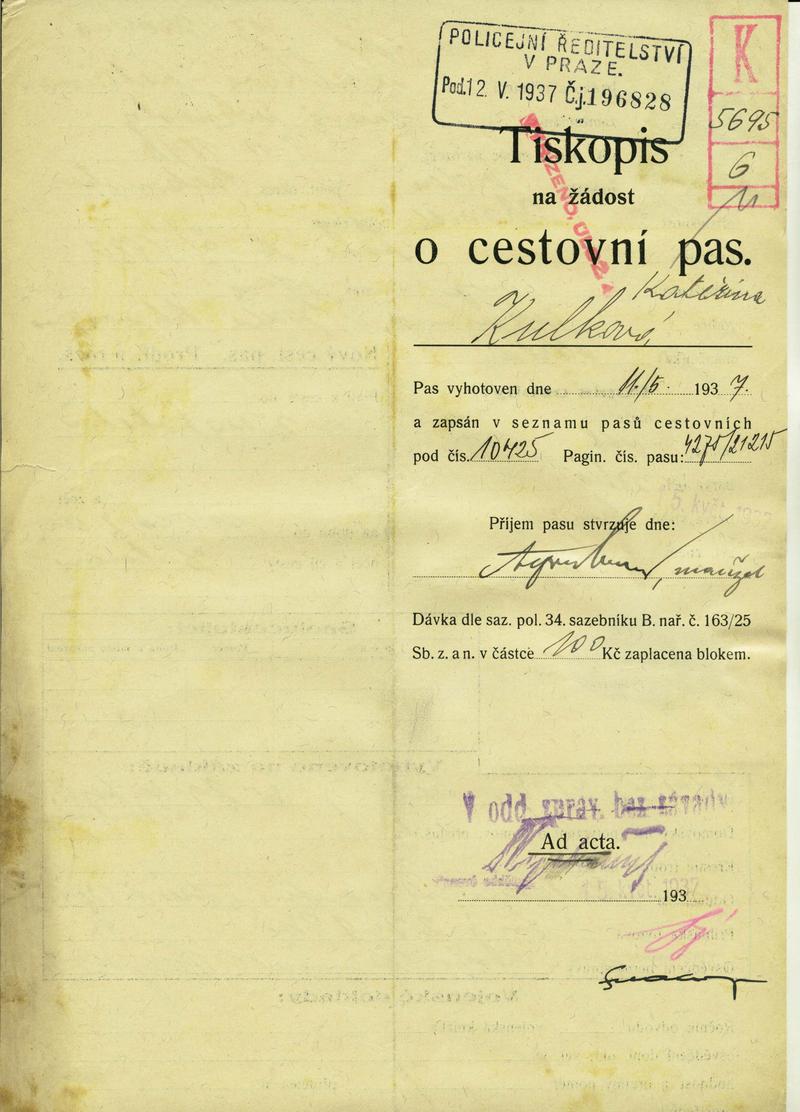 POLICEJNÍ ŘEDITELSTVÍ
V PRAZE.
Pod. 12. V. 1937 Č.j. 196828
K
5695
6
Tiskopis
na žádost
o cestovní pas.
Kateřina
Kulková
Pas vyhotoven dne 11./5. 1937.
a zapsán v seznamu pasů cestovních
pod čís. 10425 Pagin. čís. pasu: 4275/21215
Příjem pasu stvrzuje dne:
manžel
Dávka dle saz. pol. 34. sazebníku B. nař. č. 163/25
Sb. z. a n. v částce 100 Kč zaplacena blokem.
V odd. zprav. bez závady
Ad acta.
193